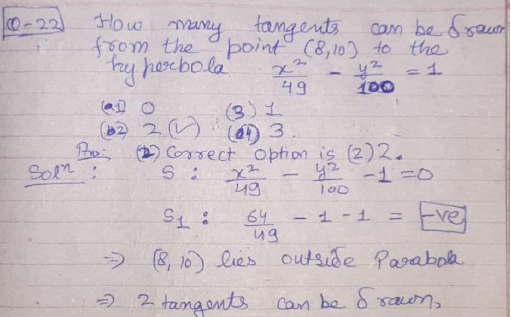 Q-22 How many tangents can be drawn
from the point (8,10) to the
hyperbola x²/49 - y²/100 = 1
(1) 0 (3) 1
(2) 2 (✓) (4) 3.
Ans: (2) Correct option is (2) 2.
Solⁿ: S : x²/49 - y²/100 - 1 = 0
S₁ : 64/49 - 1 - 1 = -ve
⇒ (8, 10) lies outside Parabola
⇒ 2 tangents can be drawn,